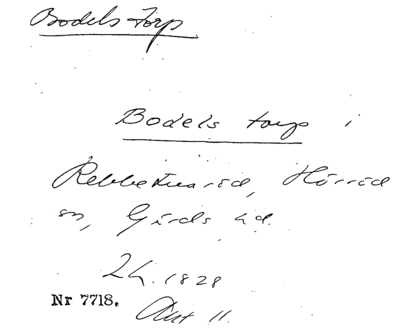 Bodels torp
Bodels torp i
Rebbetuaröd, Hörröd
sn, Gärds hd.
Lh. 1828
Nr 7718. Akt 11.